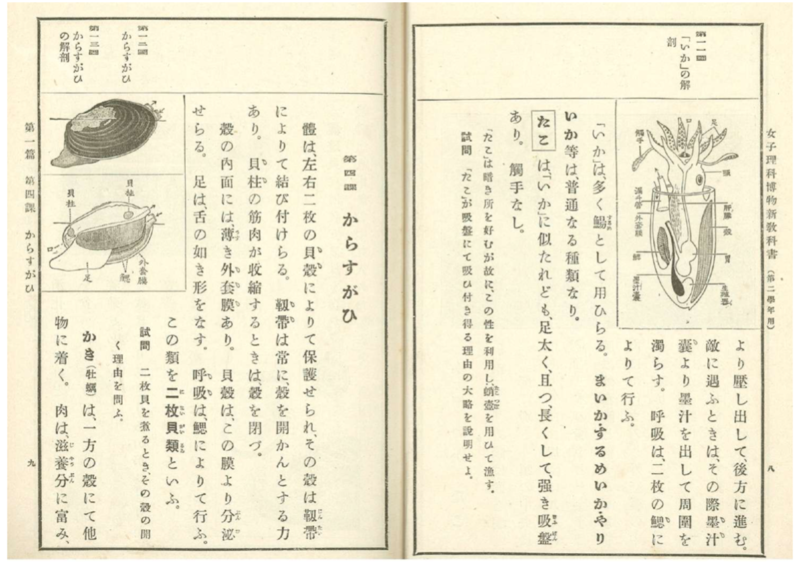 女子理科博物新敎科書 (第二學年用)
八
第一一圖
「いか」の解
剖
足
口
觸手
眼
漏斗管
外套膜
肝臟
胃
鰓
墨汁囊
より壓し出して、後方に進む。
敵に遇ふときは、その際墨汁
囊より墨汁を出して周圍を
濁らす。呼吸は、二枚の鰓に
よりて行ふ。
「いか」は、多く鯣として用ひらる。まいか・するめいか・やり
いか等は、普通なる種類なり。
たこは、「いか」に似たれども、足太く、且つ、長くして、强き吸盤
あり。觸手なし。
「たこ」は暗き所を好むが故に、この性を利用し、蛸壺を用ひて漁す。
試問 「たこ」が吸盤にて吸ひ付き得る理由の大略を說明せよ。
第四課 からすがひ
體は、左右二枚の貝殼によりて保護せられ、その殼は靱帶
によりて結び付けらる。靱帶は常に、殼を開かんとする力
あり。貝柱の筋肉が收縮するときは、殼を閉づ。
殼の內面には薄き外套膜あり。貝殼は、この膜より分泌
せらる。足は、舌の如き形をなす。呼吸は、鰓によりて行ふ。
第一二圖
からすがひ
第一三圖
からすがひ
の解剖
貝柱
貝柱
口
足
鰓
外套膜
この類を二枚貝類といふ。
試問 二枚貝を煮るとき、その殼の開
く理由を問ふ。
かき(牡蠣)は、一方の殼にて他
物に着く。肉は、滋養分に富み、
第一篇 第四課 からすがひ
九